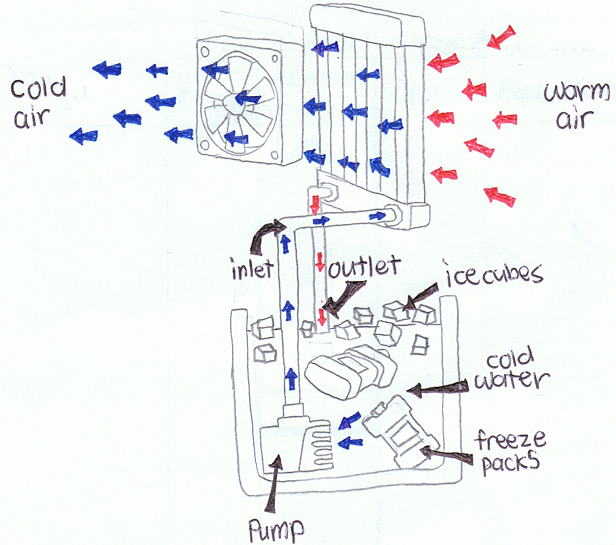 cold
air
warm
air
inlet
outlet
ice cubes
cold
water
freeze
packs
Pump